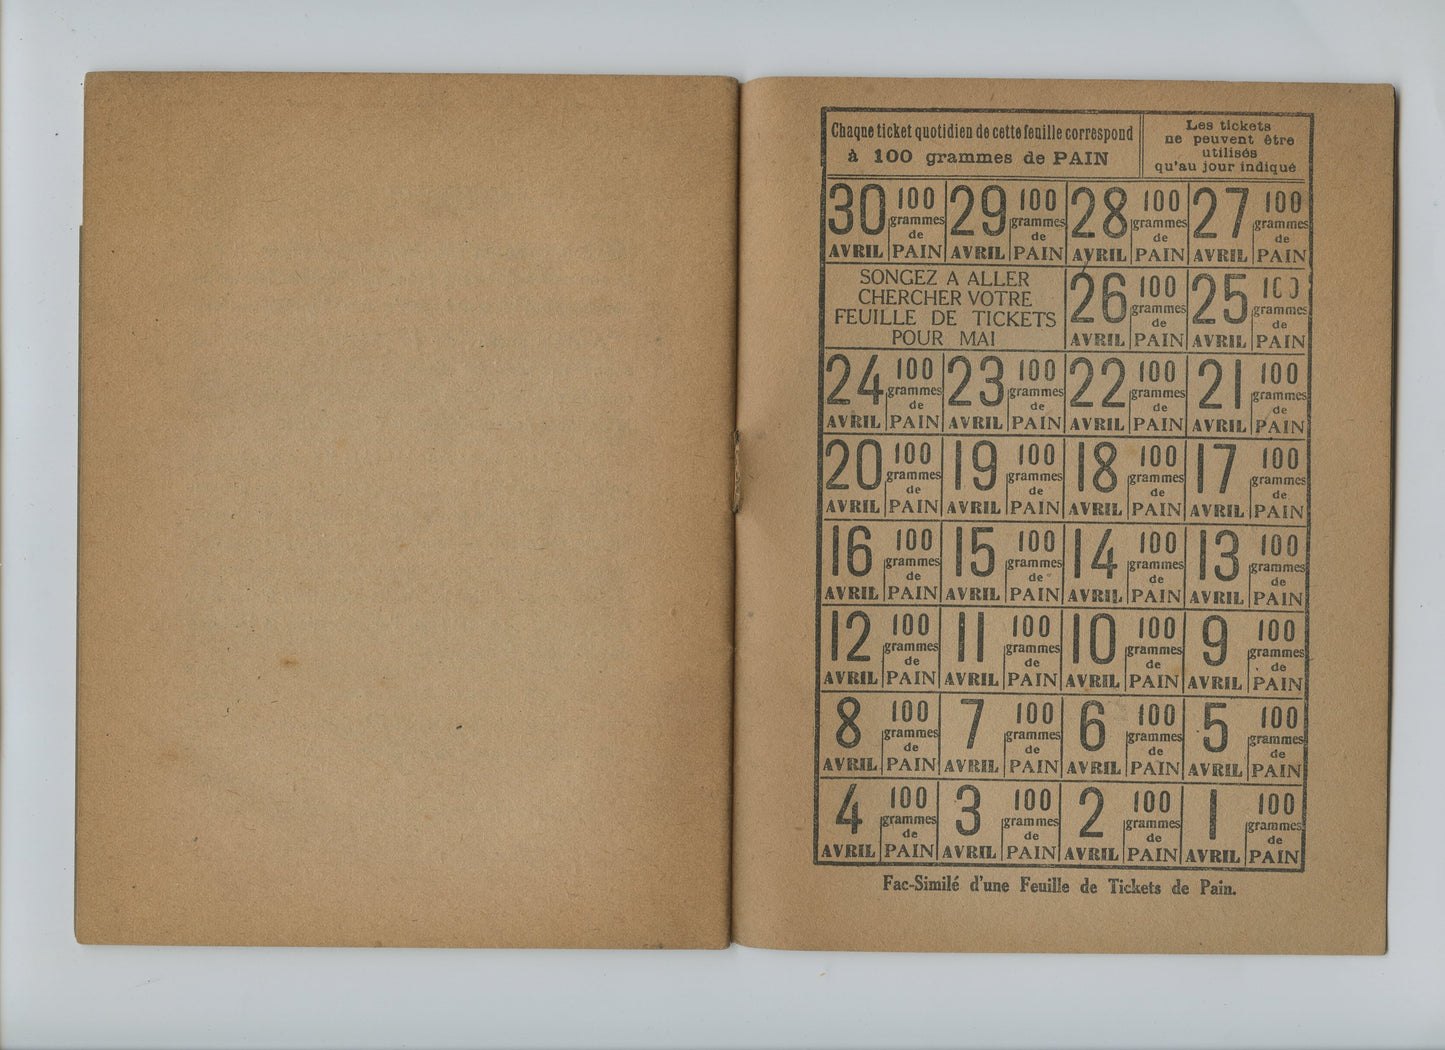 Chaque ticket quotidien de cette feuille correspond
à 100 grammes de PAIN
Les tickets
ne peuvent être
utilisés
qu'au jour indiqué
30 AVRIL 100 grammes de PAIN
29 AVRIL 100 grammes de PAIN
28 AVRIL 100 grammes de PAIN
27 AVRIL 100 grammes de PAIN
SONGEZ A ALLER
CHERCHER VOTRE
FEUILLE DE TICKETS
POUR MAI
26 AVRIL 100 grammes de PAIN
25 AVRIL 100 grammes de PAIN
24 AVRIL 100 grammes de PAIN
23 AVRIL 100 grammes de PAIN
22 AVRIL 100 grammes de PAIN
21 AVRIL 100 grammes de PAIN
20 AVRIL 100 grammes de PAIN
19 AVRIL 100 grammes de PAIN
18 AVRIL 100 grammes de PAIN
17 AVRIL 100 grammes de PAIN
16 AVRIL 100 grammes de PAIN
15 AVRIL 100 grammes de PAIN
14 AVRIL 100 grammes de PAIN
13 AVRIL 100 grammes de PAIN
12 AVRIL 100 grammes de PAIN
11 AVRIL 100 grammes de PAIN
10 AVRIL 100 grammes de PAIN
9 AVRIL 100 grammes de PAIN
8 AVRIL 100 grammes de PAIN
7 AVRIL 100 grammes de PAIN
6 AVRIL 100 grammes de PAIN
5 AVRIL 100 grammes de PAIN
4 AVRIL 100 grammes de PAIN
3 AVRIL 100 grammes de PAIN
2 AVRIL 100 grammes de PAIN
1 AVRIL 100 grammes de PAIN
Fac-Similé d'une Feuille de Tickets de Pain.